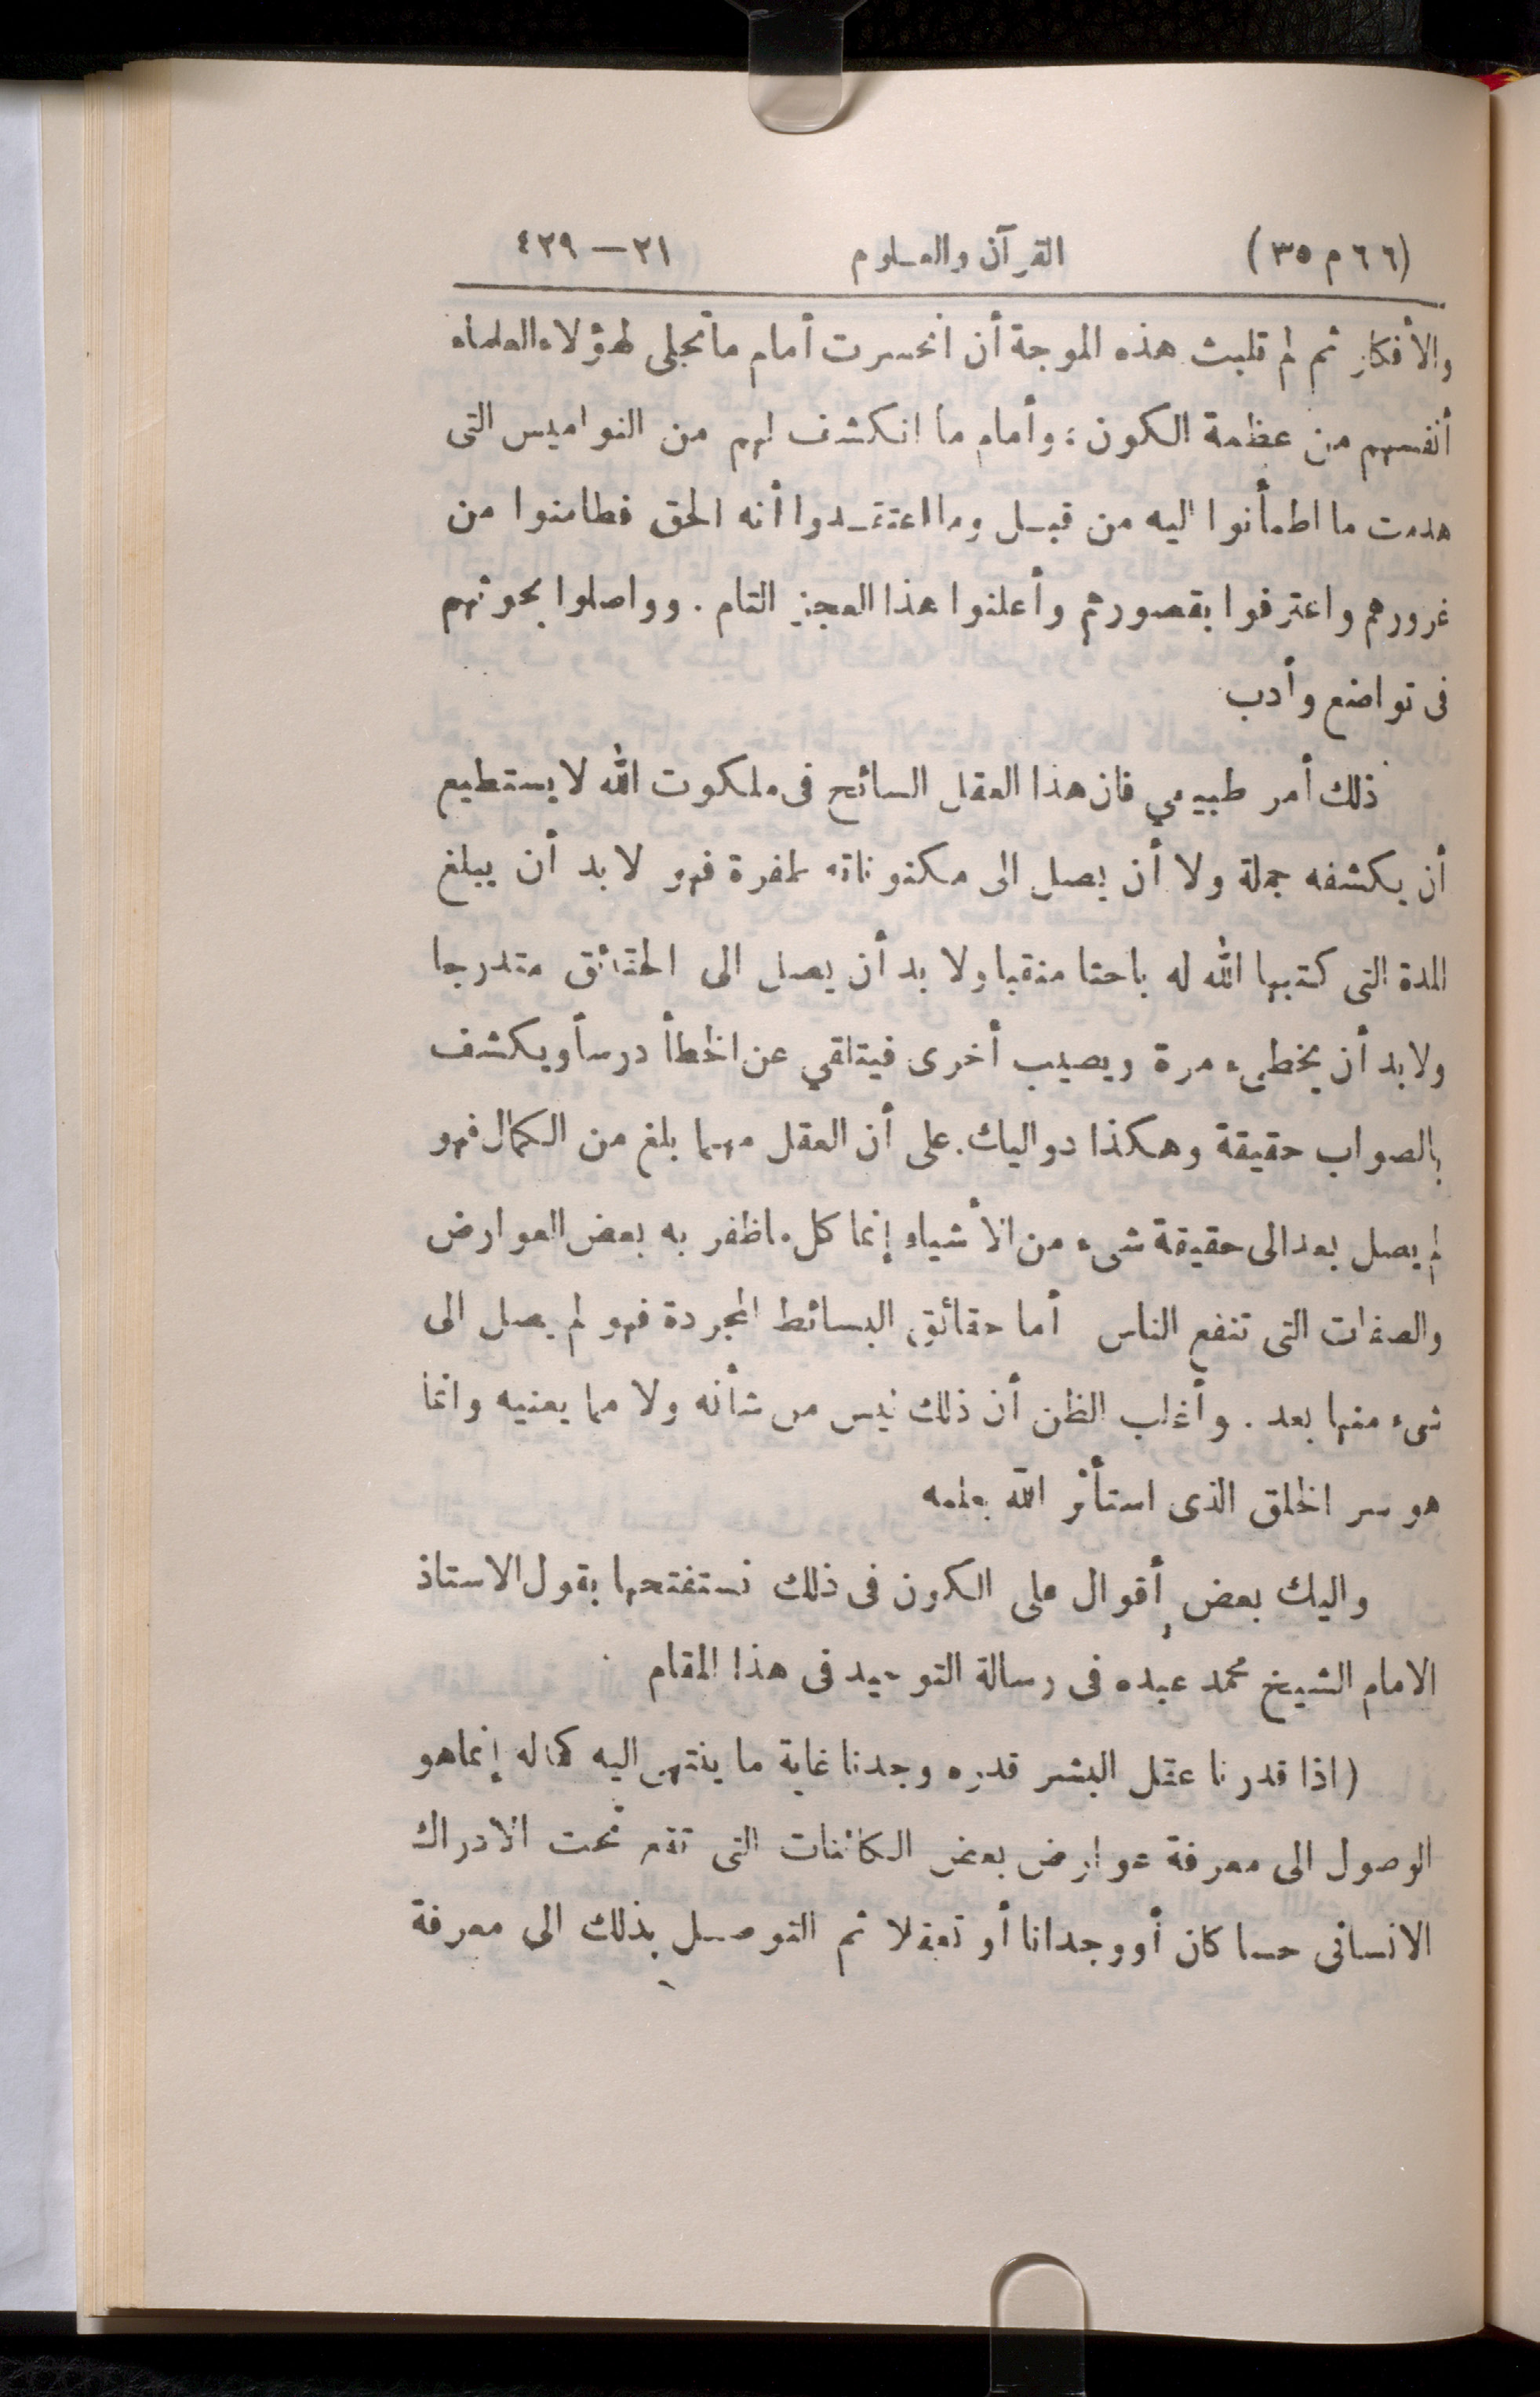 (٦٦ م ٣٥) القرآن والعلوم ٢١ – ٤٢٩
والأفكار ثم لم تلبث هذه الموجة أن انحسرت أمام ما تجلى لهؤلاء العلماء
أنفسهم من عظمة الكون ؛ وأمام ما انكشف لهم من النواميس التى
هدمت ما اطمأنوا اليه من قبل وما اعتقدوا أنه الحق فطامنوا من
غرورهم واعترفوا بقصورهم وأعلنوا هذا العجز التام . وواصلوا بحوثهم
فى تواضع وأدب
ذلك أمر طبيعي فان هذا العقل السائح فى ملكوت الله لا يستطيع
أن يكشفه جملة ولا أن يصل الى مكنوناته طفرة فهو لا بد أن يبلغ
المدة التى كتبها الله له باحثا منقبا ولا بد أن يصل الى الحقائق متدرجا
ولا بد أن يخطىء مرة ويصيب أخرى فيتلقي عن الخطأ درسا ويكشف
بالصواب حقيقة وهكذا دواليك. على أن العقل مهما بلغ من الكمال فهو
لم يصل بعد الى حقيقة شىء من الأشياء إنما كل ما ظفر به بعض العوارض
والصفات التى تنفع الناس أما حقائق البسائط المجردة فهو لم يصل الى
شىء منها بعد . وأغلب الظن أن ذلك ليس من شأنه ولا مما يعنيه وانما
هو سر الخلق الذى استأثر الله بعلمه
واليك بعض أقوال على الكون فى ذلك نستفتحها بقول الاستاذ
الامام الشيخ محمد عبده فى رسالة التوحيد فى هذا المقام
(اذا قدرنا عقل البشر قدره وجدنا غاية ما ينتهى اليه كماله إنما هو
الوصول الى معرفة عوارض بعض الكائنات التى تقع تحت الادراك
الانسانى حسا كان أو وجدانا أو تعقلا ثم التوصل بذلك الى معرفة